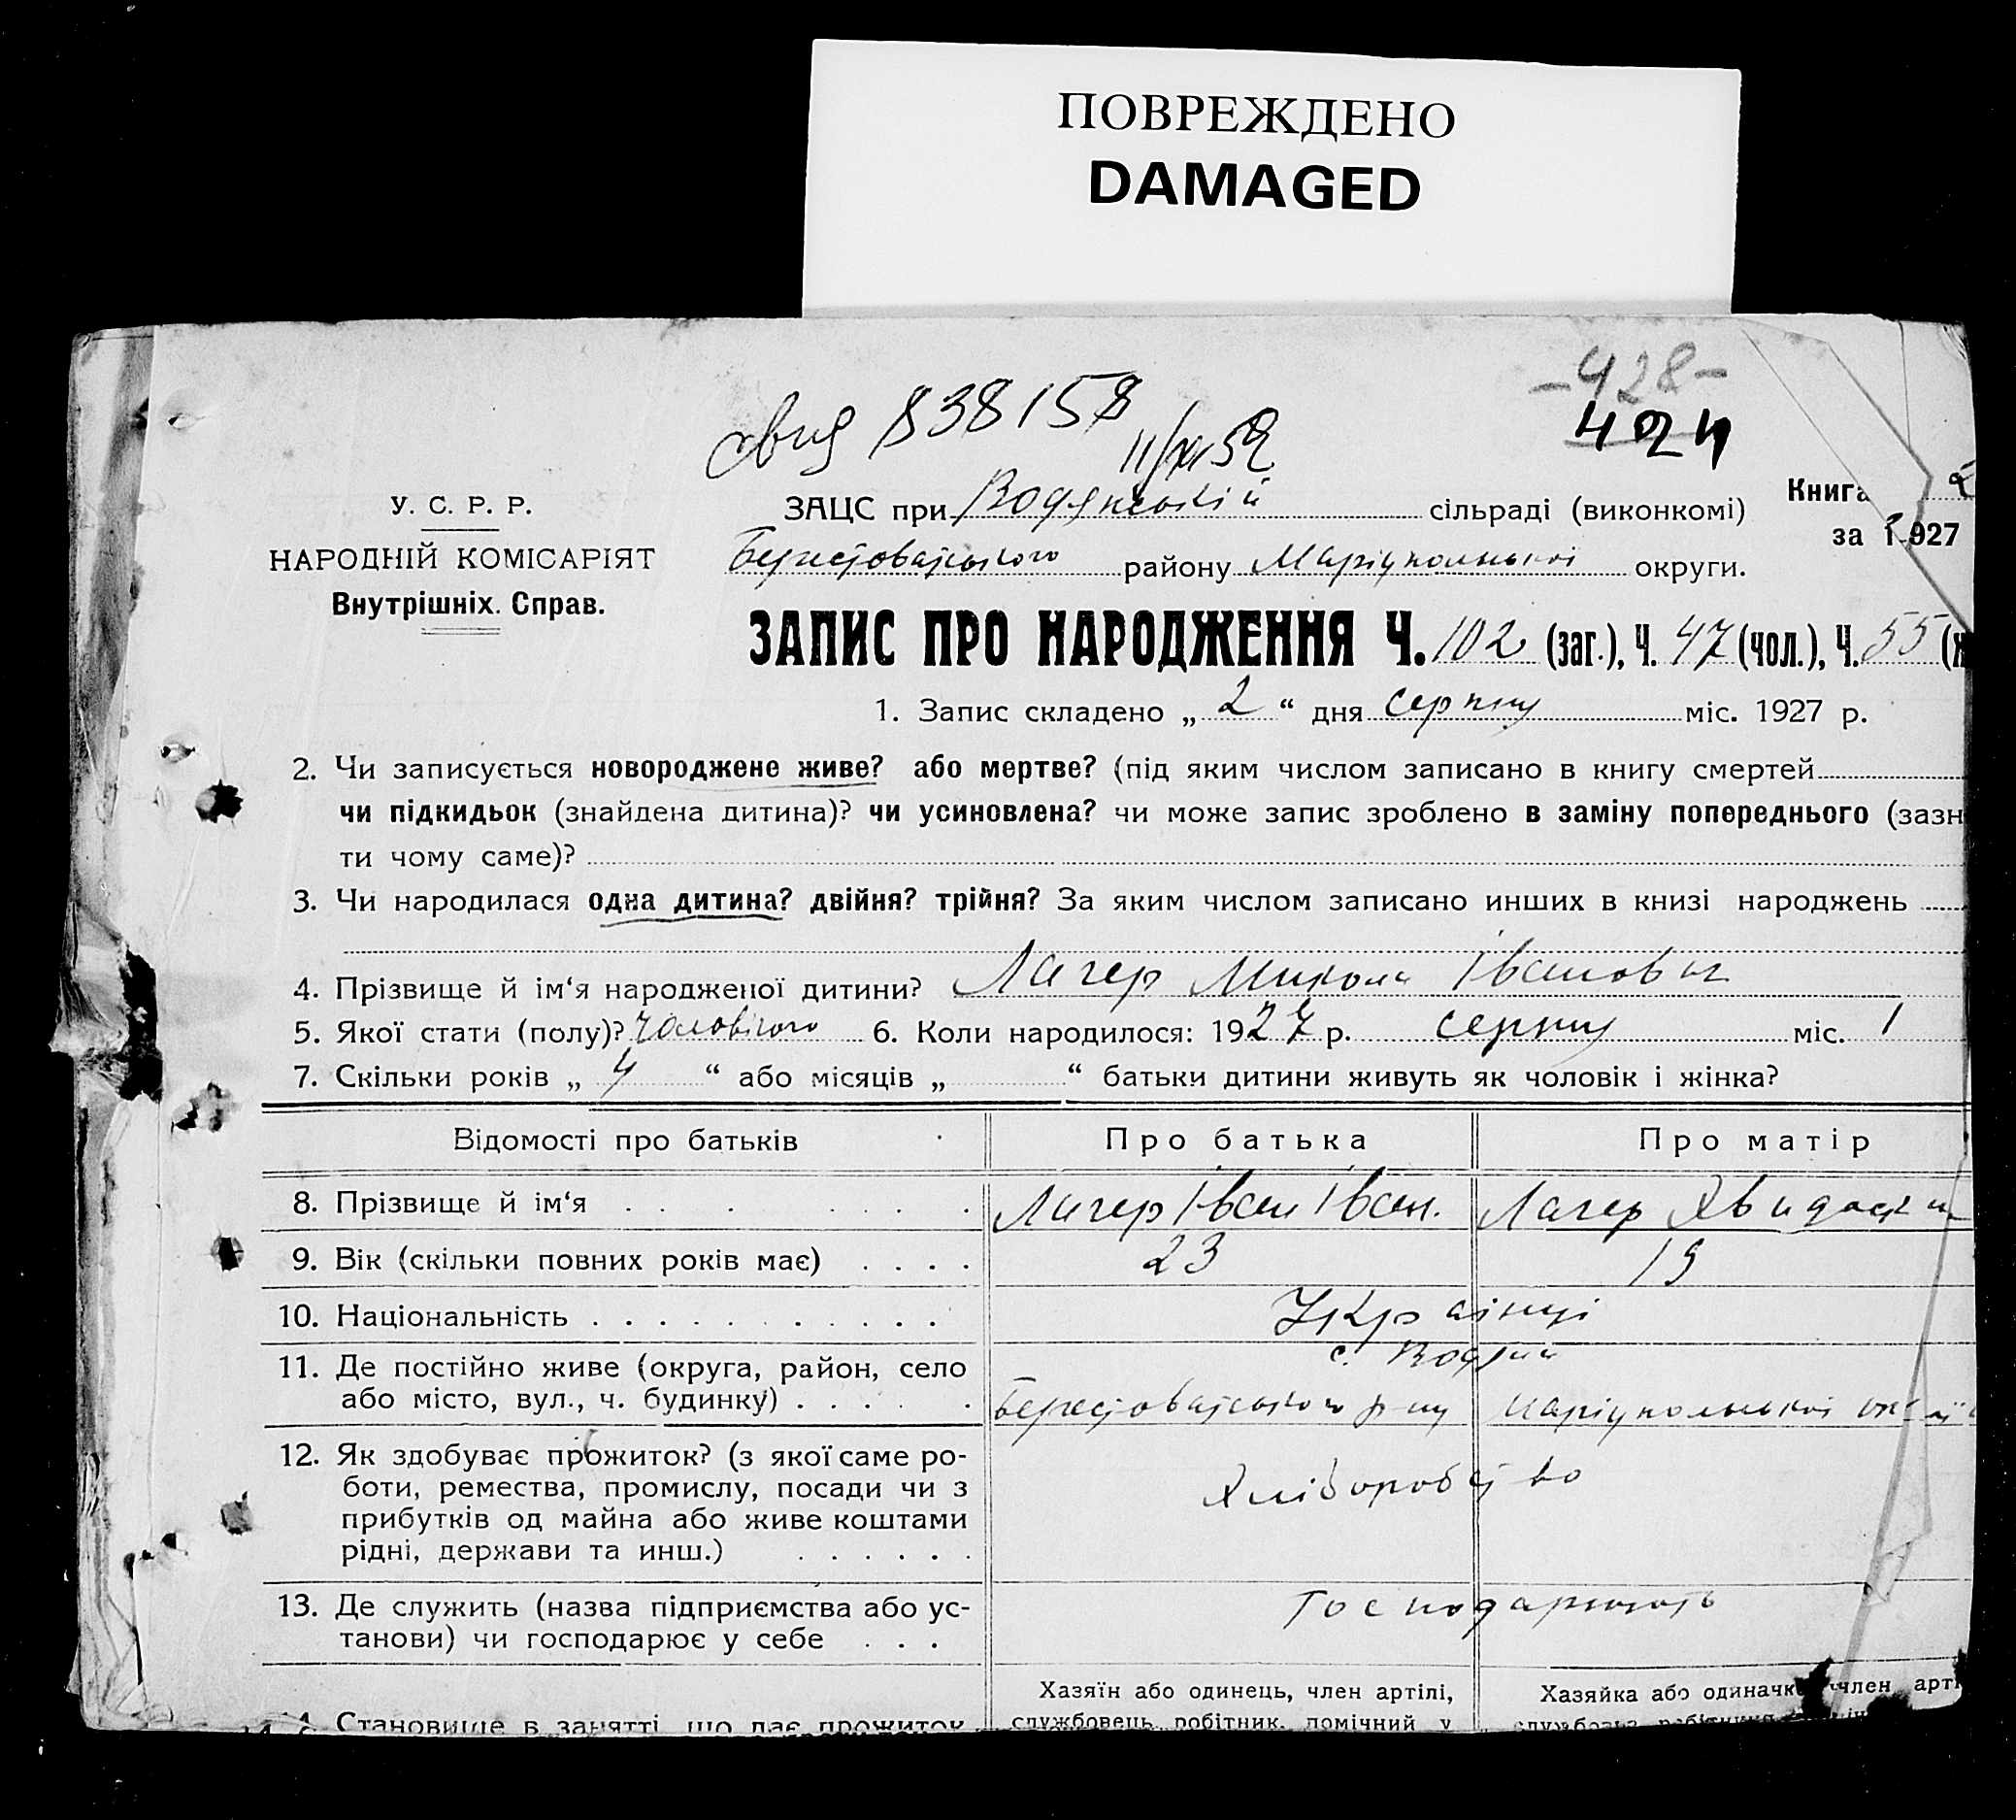 ПОВРЕЖДЕНО
DAMAGED
-428-
424
свид 838158
11/XI 52
У. С. Р. Р.
НАРОДНІЙ КОМІСАРІЯТ
Внутрішніх Справ.
ЗАЦС при Водянській сільраді (виконкомі)
Книга 2
за 1927
Берестоватського району Маріупольської округи.
ЗАПИС ПРО НАРОДЖЕННЯ Ч. 102 (заг.), Ч. 47 (чол.), Ч. 55 (ж
1. Запис складено „ 2 “ дня серпну міс. 1927 р.
2. Чи записується новороджене живе? або мертве? (під яким числом записано в книгу смертей
чи підкидьок (знайдена дитина)? чи усиновлена? чи може запис зроблено в заміну попереднього (зазн
ти чому саме)?
3. Чи народилася одна дитина? двійня? трійня? За яким числом записано инших в книзі народжень
4. Прізвище й ім‘я народженої дитини? Лагер Микола Іванович
5. Якої стати (полу)? Чоловічого 6. Коли народилося: 1927 р. серпну міс. 1
7. Скільки років „ 4 “ або місяців „ “ батьки дитини живуть як чоловік і жінка?
Відомості про батьків Про батька Про матір
8. Прізвище й ім‘я Лагер Іван Іван. Лагер
9. Вік (скільки повних років має) 23 19
10. Національність Українці
11. Де постійно живе (округа, район, село с. Водяни
або місто, вул., ч. будинку) Берестоватського р-ну Маріупольської
12. Як здобуває прожиток? (з якої саме ро-
боти, ремества, промислу, посади чи з Хліборобство
прибутків од майна або живе коштами
рідні, держави та инш.)
13. Де служить (назва підприємства або ус- Господарюють
танови) чи господарює у себе
Хазяїн або одинець, член артілі, Хазяйка або одиначка член арті
14. Становище в занятті, що дає прожиток службовець, робітник, помічний у